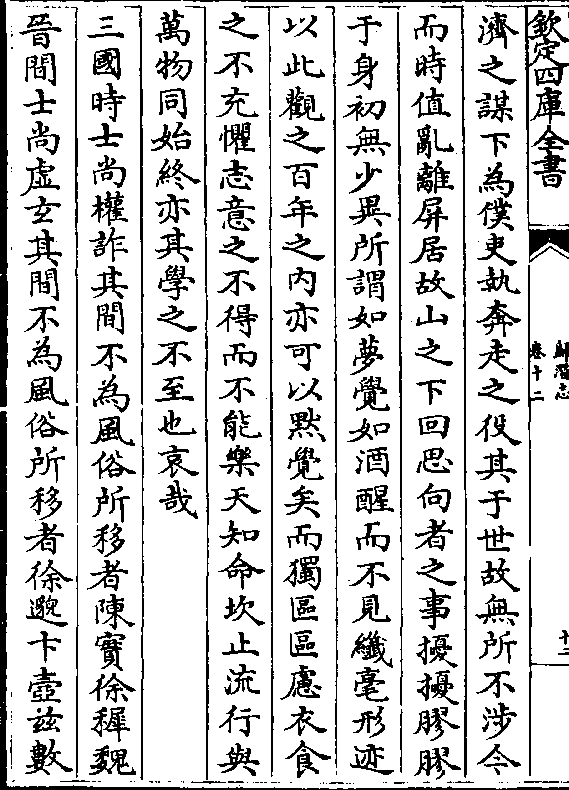 欽定四庫全書
歸潛志
卷十二
十二
濟之謀下為僕吏執奔走之役其于世故無所不涉今
而時值亂離屏居故山之下回思向者之事擾擾膠膠
于身初無少異所謂如夢覺如酒醒而不見纎毫形迹
以此觀之百年之内亦可以黙覺矣而獨區區慮衣食
之不充懼志意之不得而不能樂天知命坎止流行與
萬物同始終亦其學之不至也哀哉
三國時士尚權詐其間不為風俗所移者陳寔徐穉魏
晉間士尚虚𤣥其間不為風俗所移者徐邈卞壼兹數